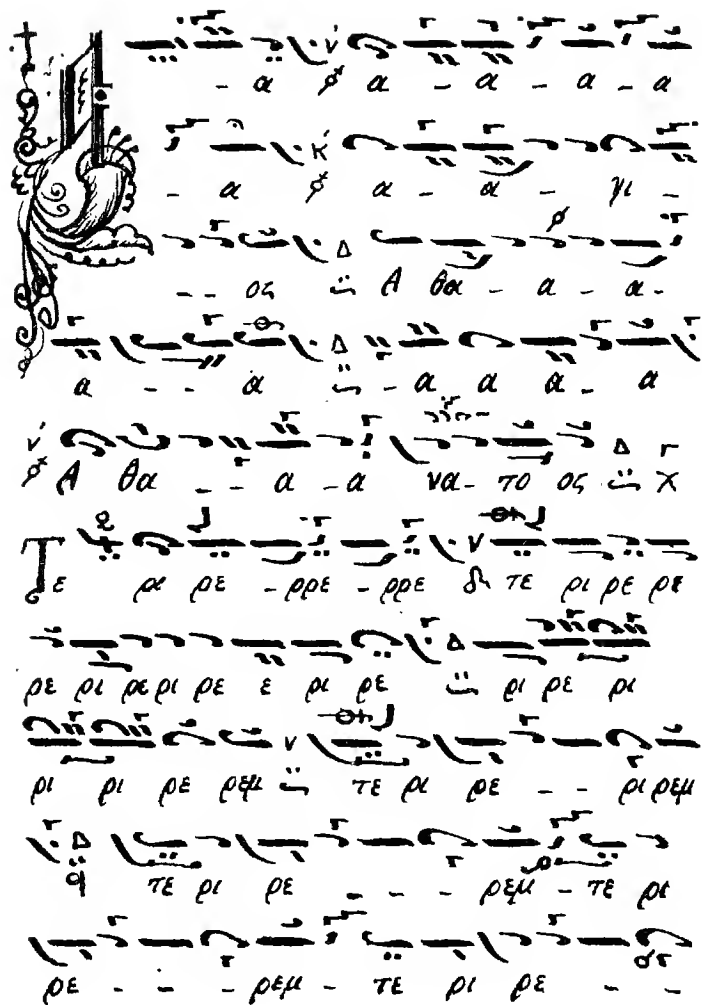 - α α - α - α - α
- α α - α - γι -
- - ος Α θα - α - α -
α - - α - α α α - α
Α θα - - α - α να - το ος
Τε ρι ρε - ρρε - ρρε τε ρι ρε ρε
ρε ρι ρε ρι ρε ε ρι ρε ρι ρε ρι
ρι ρι ρε ρεμ τε ρι ρε - - ρι ρεμ
τε ρι ρε - - - ρεμ - τε ρι
ρε - - - ρεμ - τε ρι ρε - -